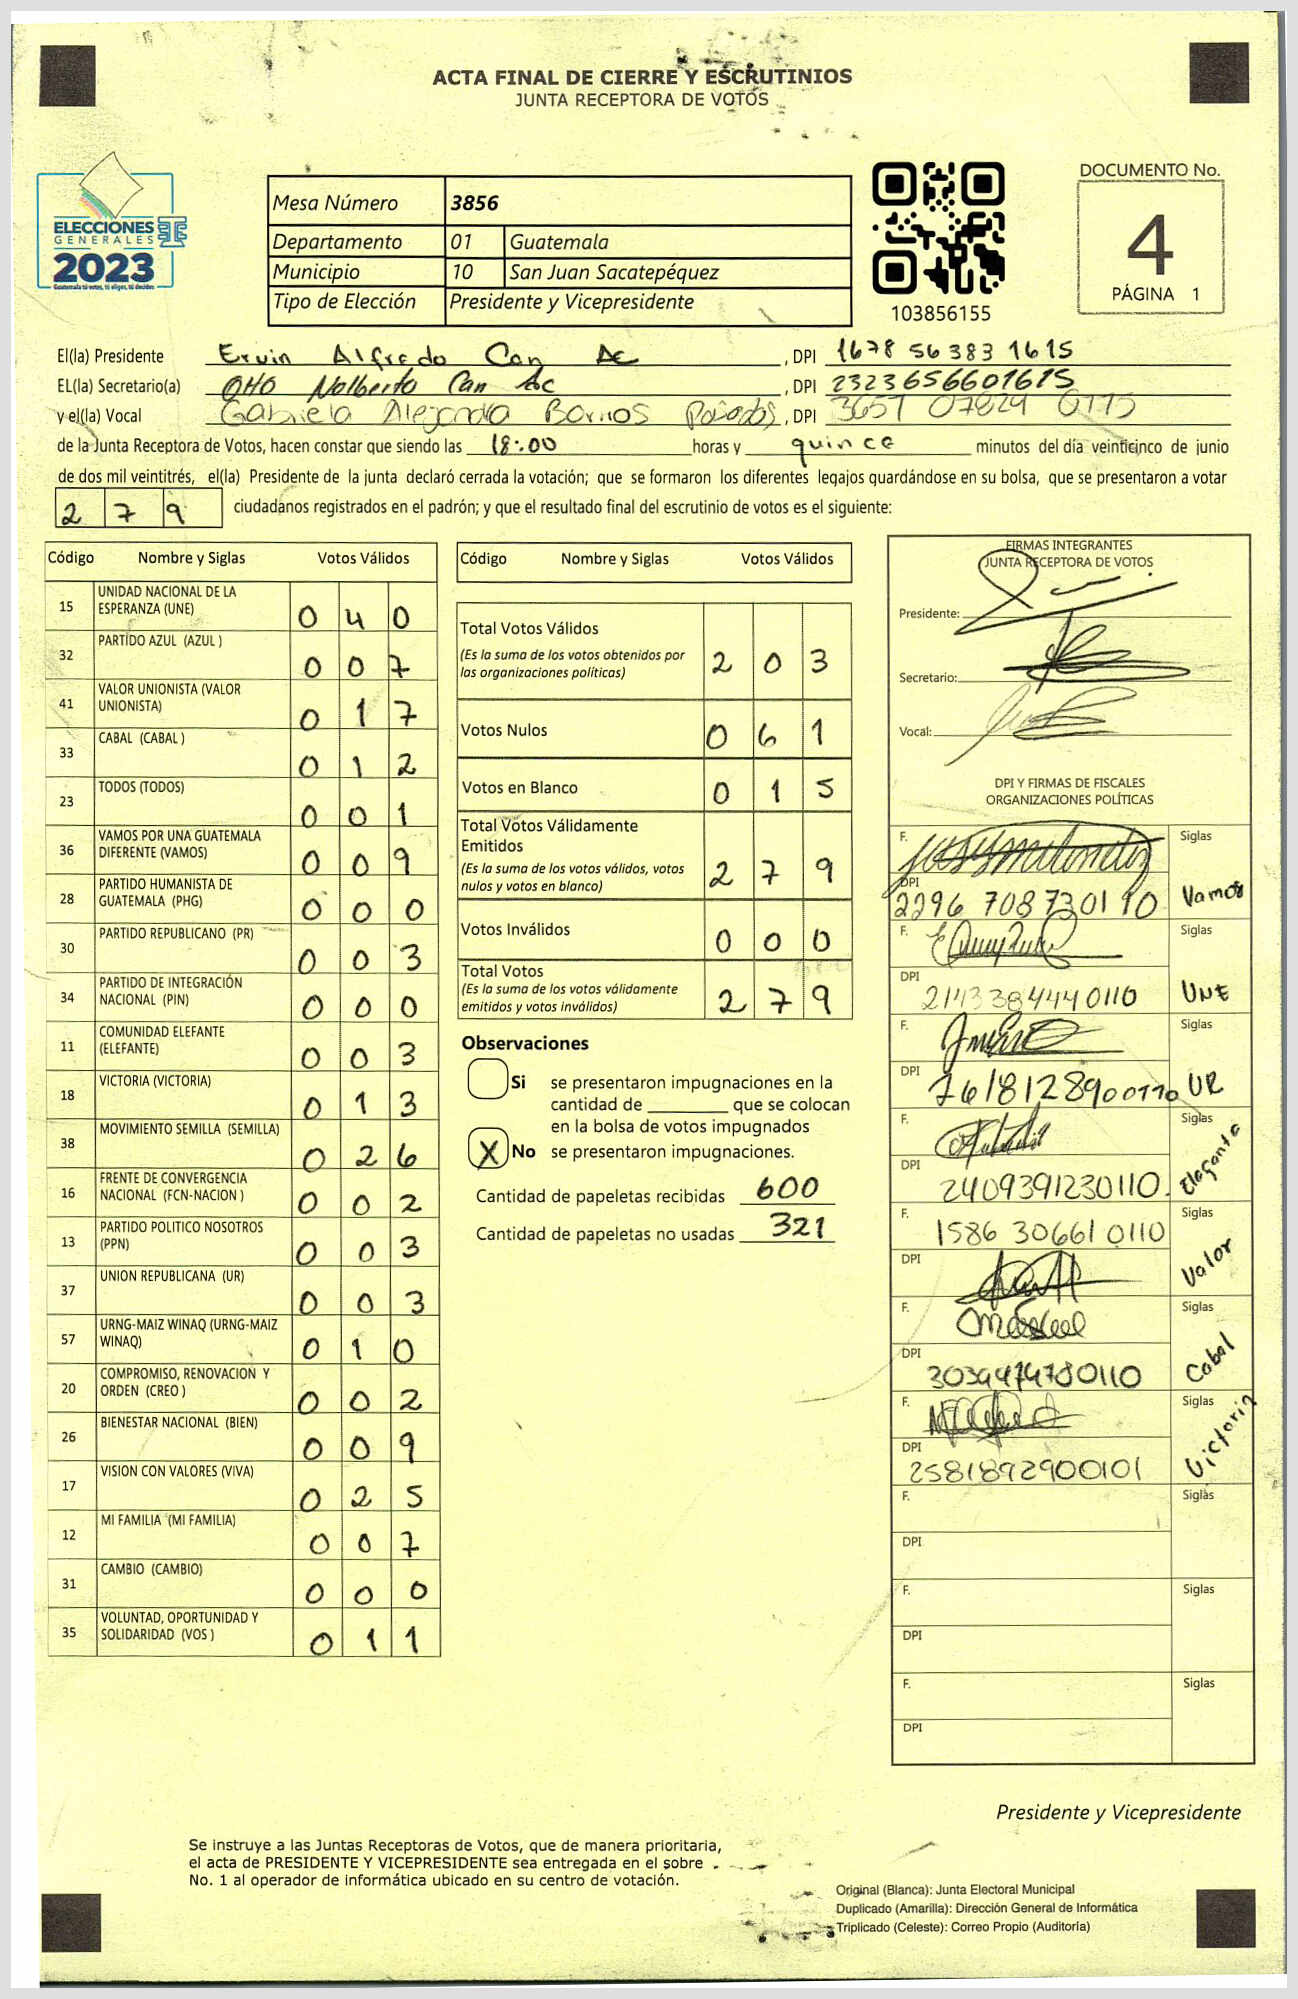 ACTA FINAL DE CIERRE Y ESCRUTINIOS
JUNTA RECEPTORA DE VOTOS
ELECCIONES
GENERALES
2023
Guatemala tú votas, tú eliges, tú decides
Mesa Número 3856
Departamento 01 Guatemala
Municipio 10 San Juan Sacatepéquez
Tipo de Elección Presidente y Vicepresidente
103856155
DOCUMENTO No.
4
PÁGINA 1
El(la) Presidente Ervin Alfredo Can Ac , DPI 1678 56383 1615
EL(la) Secretario(a) Otto Nolberto Can Ac , DPI 2323656601615
y el(la) Vocal Gabriela Alejandra Barrios , DPI 3651 07829 0115
de la Junta Receptora de Votos, hacen constar que siendo las 18:00 horas y quince minutos del día veinticinco de junio
de dos mil veintitrés, el(la) Presidente de la junta declaró cerrada la votación; que se formaron los diferentes legajos guardándose en su bolsa, que se presentaron a votar
279 ciudadanos registrados en el padrón; y que el resultado final del escrutinio de votos es el siguiente:
Código Nombre y Siglas Votos Válidos
15 UNIDAD NACIONAL DE LA ESPERANZA (UNE) 040
32 PARTIDO AZUL (AZUL ) 007
41 VALOR UNIONISTA (VALOR UNIONISTA) 017
33 CABAL (CABAL ) 012
23 TODOS (TODOS) 001
36 VAMOS POR UNA GUATEMALA DIFERENTE (VAMOS) 009
28 PARTIDO HUMANISTA DE GUATEMALA (PHG) 000
30 PARTIDO REPUBLICANO (PR) 003
34 PARTIDO DE INTEGRACIÓN NACIONAL (PIN) 000
11 COMUNIDAD ELEFANTE (ELEFANTE) 003
18 VICTORIA (VICTORIA) 013
38 MOVIMIENTO SEMILLA (SEMILLA) 026
16 FRENTE DE CONVERGENCIA NACIONAL (FCN-NACION ) 002
13 PARTIDO POLITICO NOSOTROS (PPN) 003
37 UNION REPUBLICANA (UR) 003
57 URNG-MAIZ WINAQ (URNG-MAIZ WINAQ) 010
20 COMPROMISO, RENOVACION Y ORDEN (CREO ) 002
26 BIENESTAR NACIONAL (BIEN) 009
17 VISION CON VALORES (VIVA) 025
12 MI FAMILIA (MI FAMILIA) 007
31 CAMBIO (CAMBIO) 000
35 VOLUNTAD, OPORTUNIDAD Y SOLIDARIDAD (VOS ) 011
Código Nombre y Siglas Votos Válidos
Total Votos Válidos 203
(Es la suma de los votos obtenidos por
las organizaciones políticas)
Votos Nulos 061
Votos en Blanco 015
Total Votos Válidamente
Emitidos 279
(Es la suma de los votos válidos, votos
nulos y votos en blanco)
Votos Inválidos 000
Total Votos 279
(Es la suma de los votos válidamente
emitidos y votos inválidos)
Observaciones
Si se presentaron impugnaciones en la
cantidad de ________ que se colocan
en la bolsa de votos impugnados
X No se presentaron impugnaciones.
Cantidad de papeletas recibidas 600
Cantidad de papeletas no usadas 321
FIRMAS INTEGRANTES
JUNTA RECEPTORA DE VOTOS
Presidente:
Secretario:
Vocal:
DPI Y FIRMAS DE FISCALES
ORGANIZACIONES POLÍTICAS
F. Siglas
DPI 2296 70873 0110 Vamos
F. Siglas
DPI 2143384440110 UNE
F. Siglas
DPI 7618128900110 UR
F. Siglas
DPI 2409391230110. Elegante
F. 1586 30661 0110 Siglas
DPI Valor
F. Siglas
DPI 3034474780110 Cabal
F. Siglas
DPI 2581892900101 Victoria
F. Siglas
DPI
F. Siglas
DPI
F. Siglas
DPI
Presidente y Vicepresidente
Se instruye a las Juntas Receptoras de Votos, que de manera prioritaria,
el acta de PRESIDENTE Y VICEPRESIDENTE sea entregada en el sobre
No. 1 al operador de informática ubicado en su centro de votación.
Original (Blanca): Junta Electoral Municipal
Duplicado (Amarilla): Dirección General de Informática
Triplicado (Celeste): Correo Propio (Auditoría)